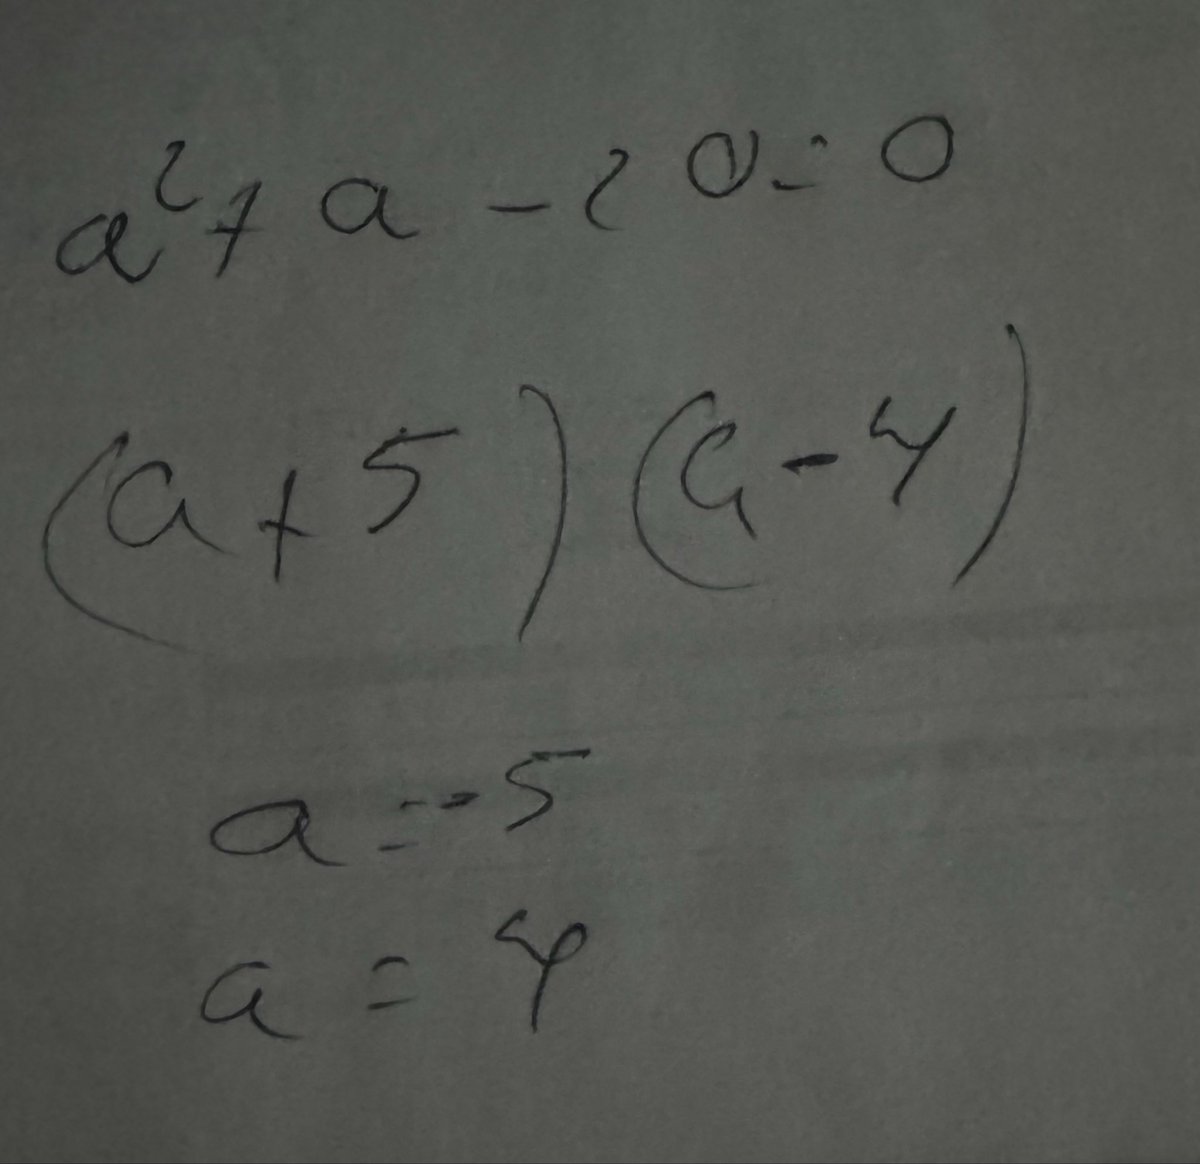 a² + a - 20 = 0
(a + 5) (a - 4)
a = -5
a = 4